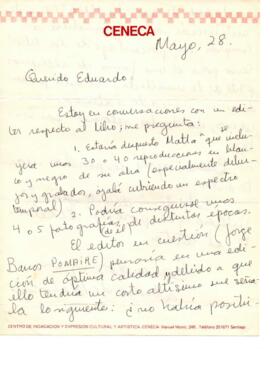 CENECA
Mayo, 28.
Querido Eduardo:
Estoy en conversaciones con un edi-
tor respecto al libro; me pregunta:
1. Estaría dispuesto Matta a que se inclu-
yera unos 30 o 40 reproducciones en blan-
co y negro de su obra (especialmente dibu-
jos y grabados, ojalá cubriendo un espectro
temporal)
2. Podría conseguirse unas
4 o 5 fotografías de él de distintas épocas.
El editor en cuestión (Jorge
Barros POMAIRE) pensaría en una edi-
ción de óptima calidad y debido a que
ello tendría un costo altísimo me seña-
la lo siguiente: ¿no habría positi-
CENTRO DE INDAGACION Y EXPRESION CULTURAL Y ARTISTICA. CENECA Santiago